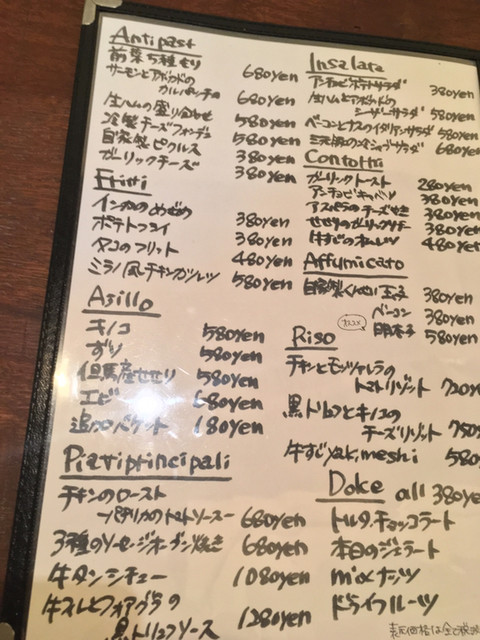 Antipast
前菜5種もり 680yen
サーモンとアボカドの
カルパッチョ 680yen
生ハムの盛り合わせ 580yen
冷製チーズフォンデュ 580yen
自家製ピクルス 380yen
ガーリックチーズ 380yen
Fritti
インカのめざめ 380yen
ポテトフライ 380yen
タコのフリット 480yen
ミラノ風チキンカツレツ 580yen
Asillo
キノコ 580yen
ずり 580yen
但馬産せせり 580yen
エビ 680yen
追加バケット 180yen
Piattiprincipali
チキンのロースト
ーパプリカのトマトソースー 680yen
3種のソーセージオーブン焼き 680yen
牛タンシチュー 1080yen
牛ヒレとフォアグラの
黒トリュフソース 1280yen
Insalata
アンチョビポテトサラダ 380yen
生ハムとアボカドの
シーザーサラダ 580yen
ベーコンとナスのイタリアンサラダ 580yen
サラダ 680yen
Contorni
ガーリックトースト 280yen
アンチョビキャベツ 380yen
アスパラのチーズ焼き 380yen
せせりのガーリックソテー 380yen
牛すじのオムレツ 480yen
Affumicato
自家製くんせい玉子 380yen
ベーコン 380yen
オススメ 明太子 580yen
Riso
チキンとモッツァレラの
トマトリゾット 720yen
黒トリュフとキノコの
チーズリゾット 780yen
牛すじyakimeshi 580
Dolce all 380yen
トルタ・チョッコラート
本日のジェラート
mixナッツ
ドライフルーツ
表示価格は全て税